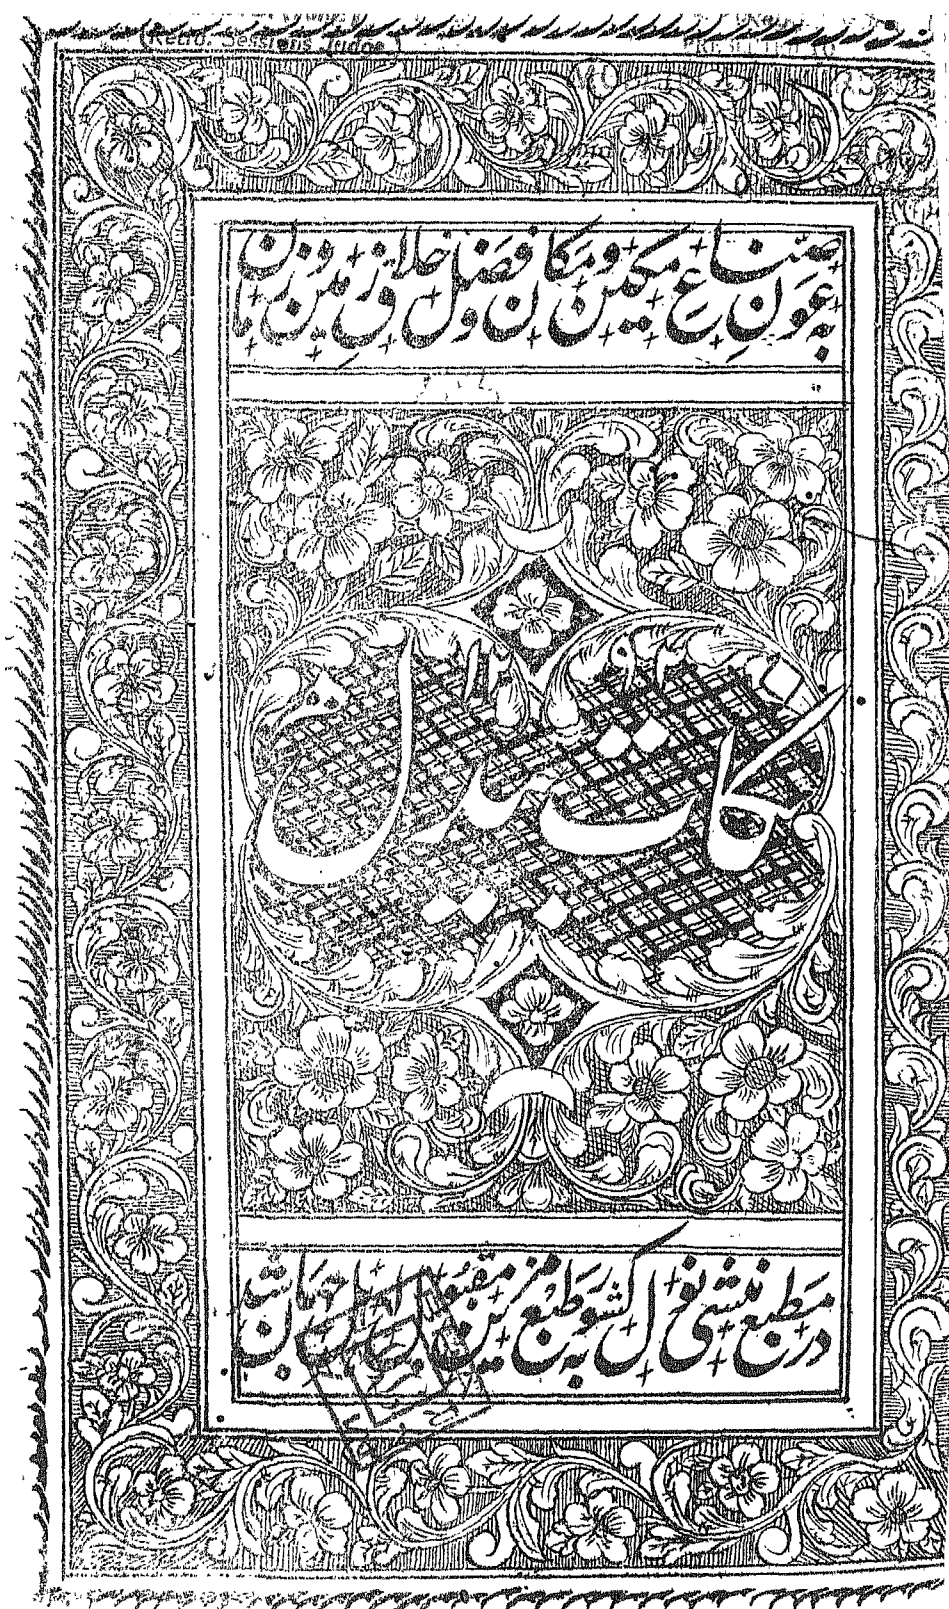 (Retd. Sessions Judge)
بعون صناع مکین و مکان و فضل خلاق زمین و زمان
۱۲۹۴
نکات بیدل
در مطبع منشی نولکشور طبع مزین مقبول جهان شد